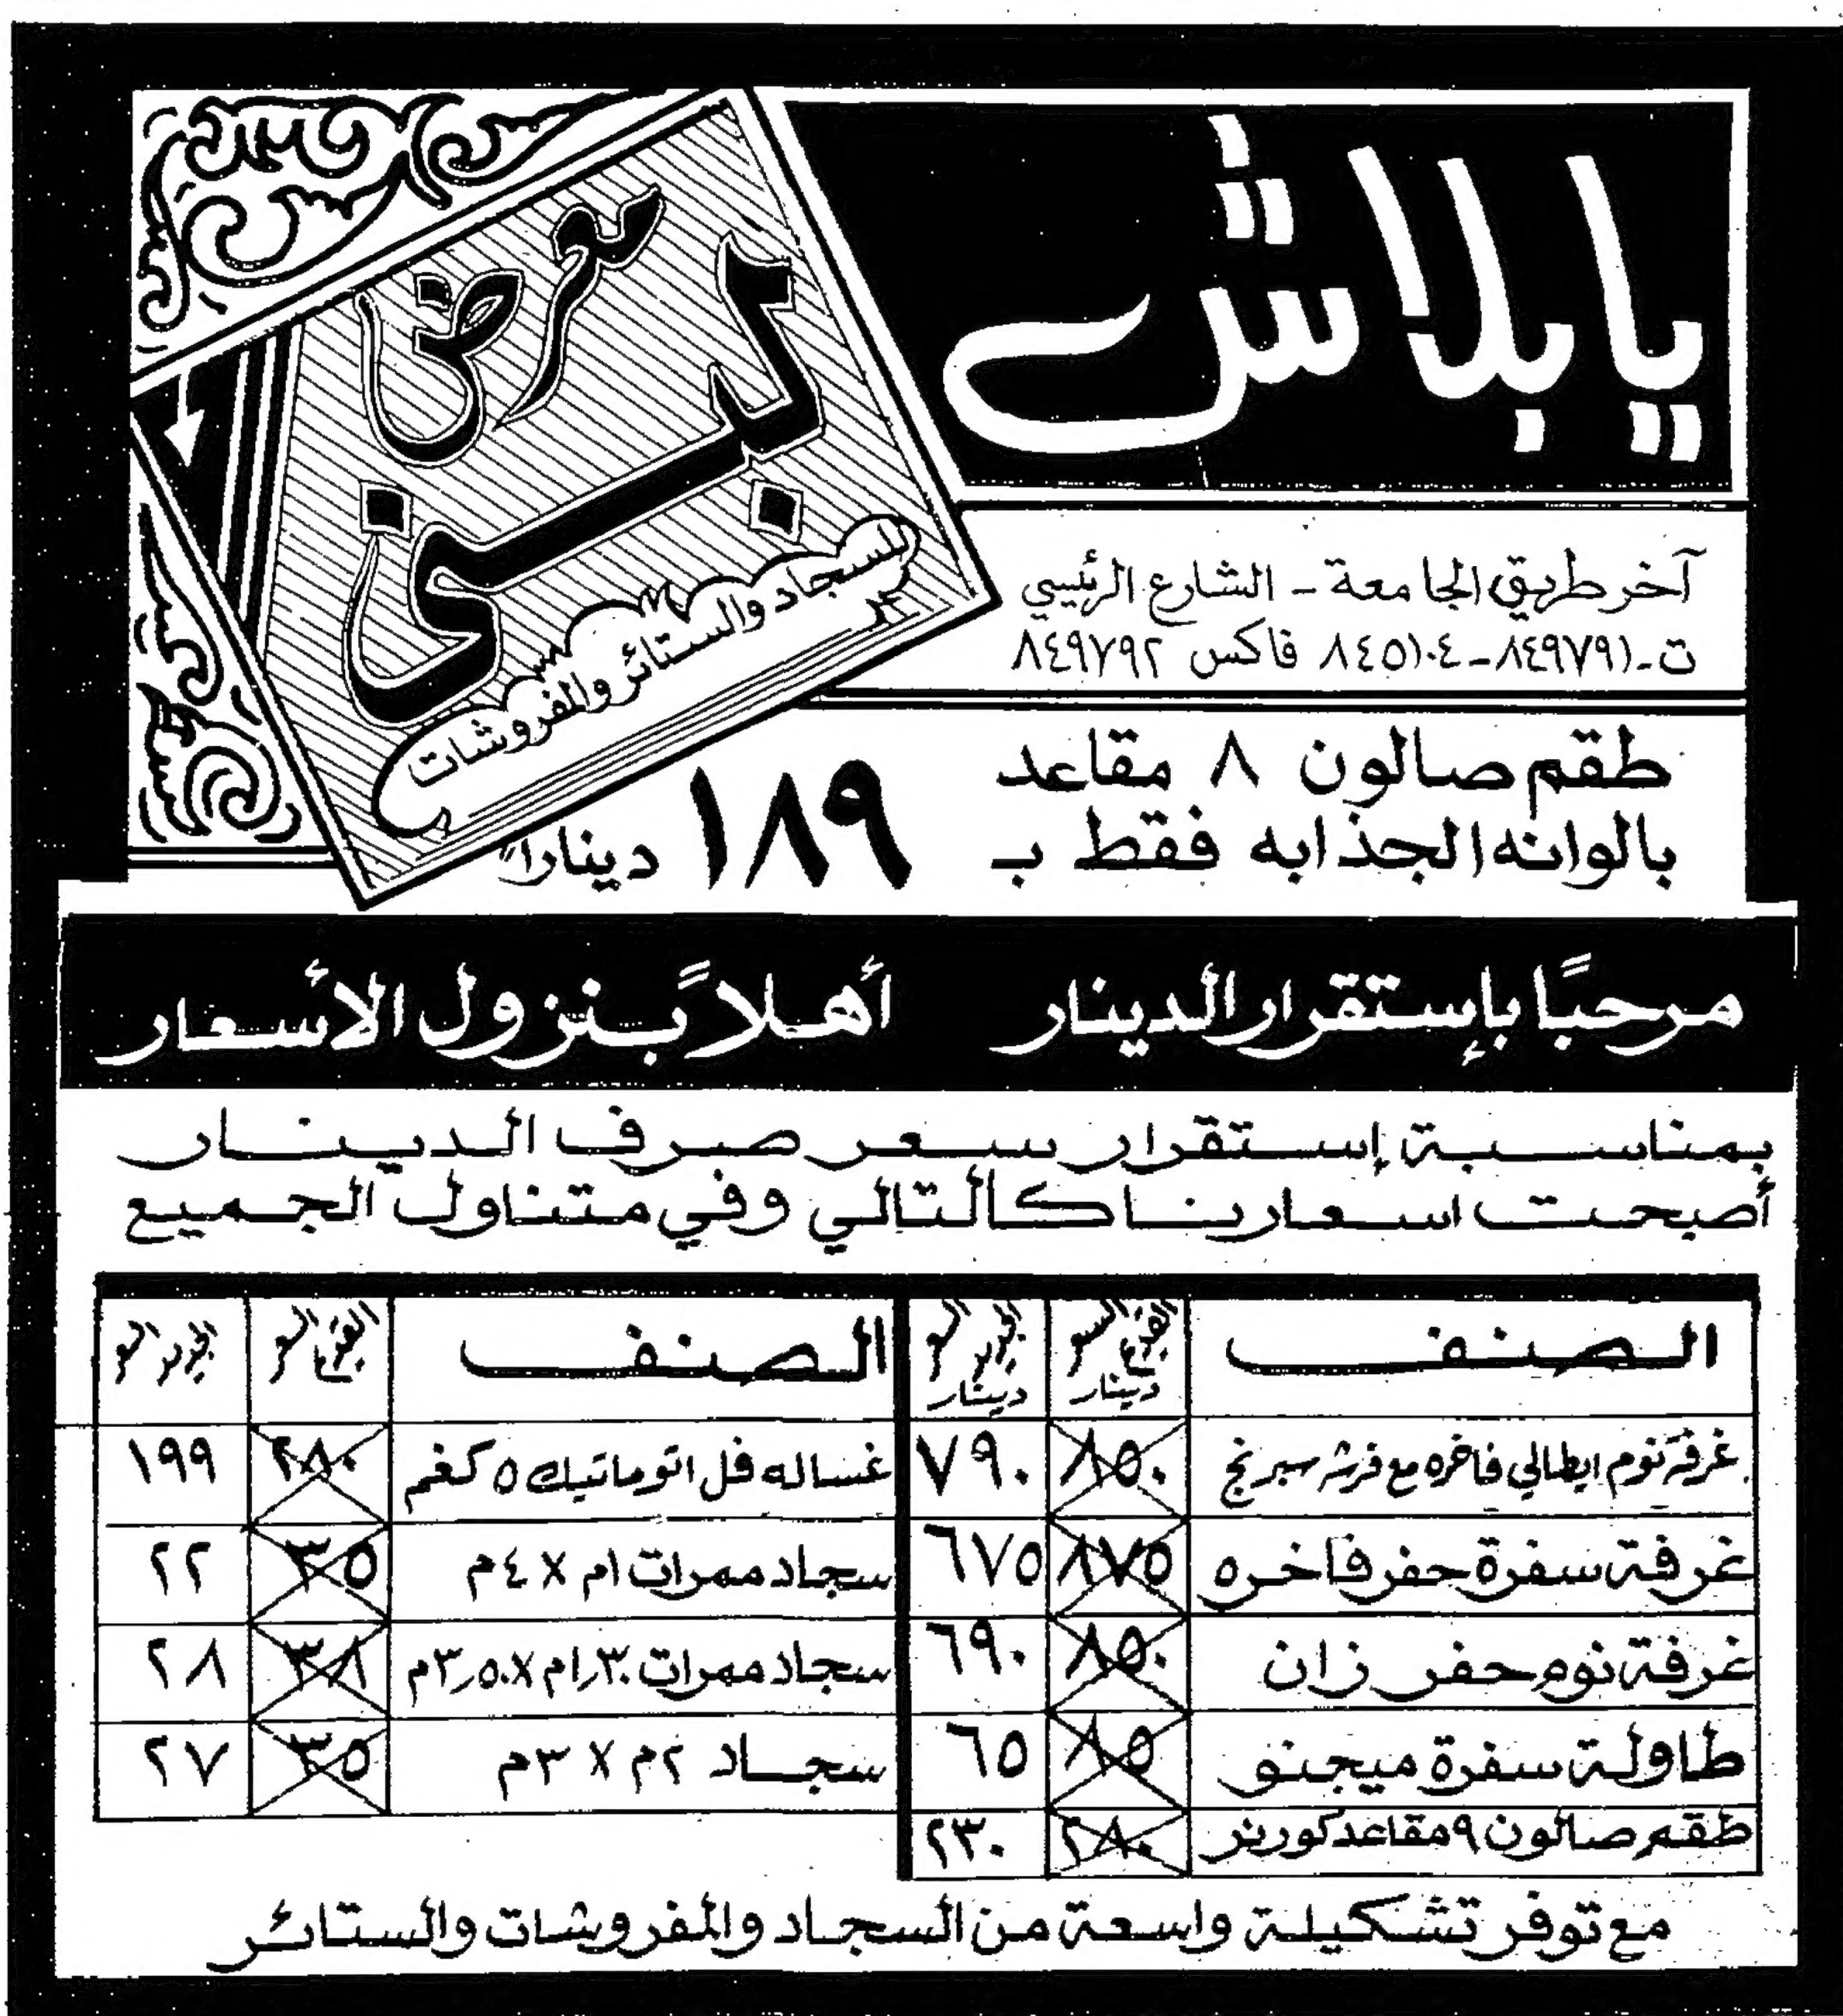 يا بلاش
معرض
لبنى
للسجاد والستائر والمفروشات
آخر طريق الجامعة - الشارع الرئيسي
ت ـ ٨٤٩٧٩١ - ٨٤٥١٠٤ فاكس ٨٤٩٧٩٢
طقم صالون ٨ مقاعد
بالوانه الجذابه فقط بـ ١٨٩ ديناراً
مرحبًا بإستقرار الدينار أهلاً بنزول الأسعار
بمناسبة إستقرار سعر صرف الدينار
أصبحت اسعارنا كالتالي وفي متناول الجميع
الصنف السعر القديم دينار السعر الجديد دينار
غرفة نوم ايطالي فاخره مع فرشه سبرنج ٨٥٠ ٧٩٠
غرفة سفرة حفر فاخره ٨٧٥ ٦٧٥
غرفة نوم حفر زان ٨٥٠ ٦٩٠
طاولة سفرة ميجنو ٨٥ ٦٥
طقم صالون ٩ مقاعد كورنر ٢٨٠ ٢٣٠
الصنف السعر القديم السعر الجديد
غساله فل اتوماتيك ٥ كغم ٢٨٠ ١٩٩
سجاد ممرات ١م X ٤م ٣٥ ٢٢
سجاد ممرات ١٫٣٠م X ٣٫٥٠م ٣٨ ٢٨
سجاد ٢م X ٣م ٣٥ ٢٧
مع توفر تشكيلة واسعة من السجاد والمفروشات والستائر